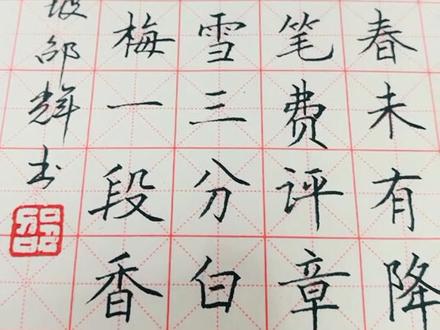 春未有降
笔费评章
雪三分白
梅一段香
坡邵辉书
邵